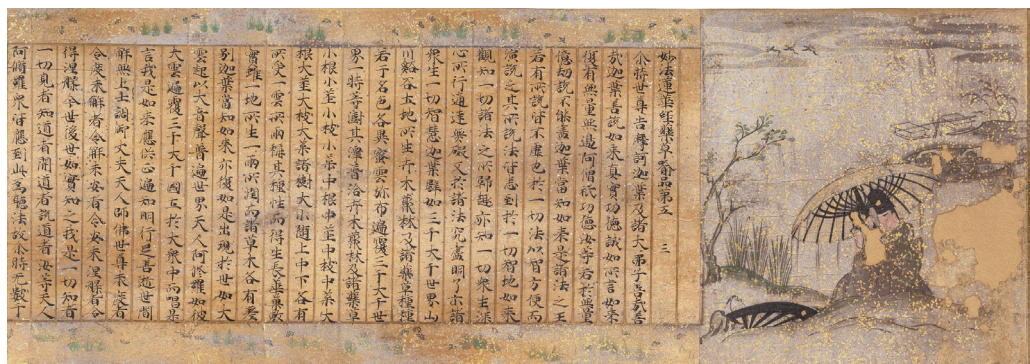 妙法蓮華經藥草喻品第五 三
尒時世尊告摩訶迦葉及諸大弟子善哉善
哉迦葉善說如來真實功德誠如所言如來
復有無量無邊阿僧祇功德汝等若於無量
億劫說不能盡迦葉當知如來是諸法之王
若有所說皆不虛也於一切法以智方便而
演說之其所說法皆悉到於一切智地如來
觀知一切諸法之所歸趣亦知一切眾生深
心所行通達無礙又於諸法究盡明了示諸
眾生一切智慧迦葉譬如三千大千世界山
川谿谷土地所生卉木叢林及諸藥草種種
若干名色各異密雲弥布遍覆三千大千世
界一時等澍其澤普洽卉木叢林及諸藥草
小根小莖小枝小葉中根中莖中枝中葉大
根大莖大枝大葉諸樹大小隨上中下各有
所受一雲所雨稱其種性而得生長華菓敷
實雖一地所生一雨所潤而諸草木各有差
別迦葉當知如來亦復如是出現於世如大
雲起以大音聲普遍世界天人阿修羅如彼
大雲遍覆三千大千國土於大眾中而唱是
言我是如來應供正遍知明行足善逝世間
解無上士調御丈夫天人師佛世尊未度者
令度未解者令解未安者令安未涅槃者令
得涅槃今世後世如實知之我是一切知者
一切見者知道者開道者說道者汝等天人
阿修羅眾皆應到此為聽法故尒時無數千